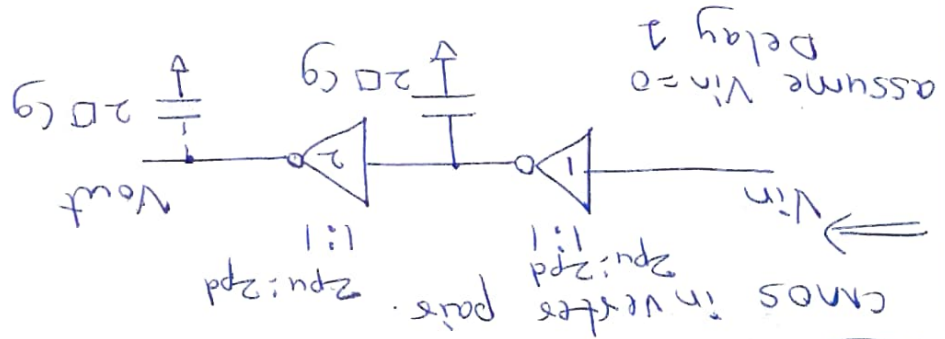 CMOS inverter pair.
Zpu:Zpd
1:1
Zpu:Zpd
1:1
Vin
1
2
Vout
2□Cg
2□Cg
assume Vin=0
Delay 1